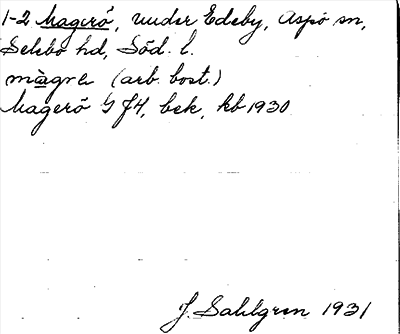 1-2 Magerö, under Edeby, Aspö sn,
Selebo hd, Söd. l.
màgrɵ (arb. bost.)
Magerö G J4, bek, kb 1930
J. Sahlgren 1931